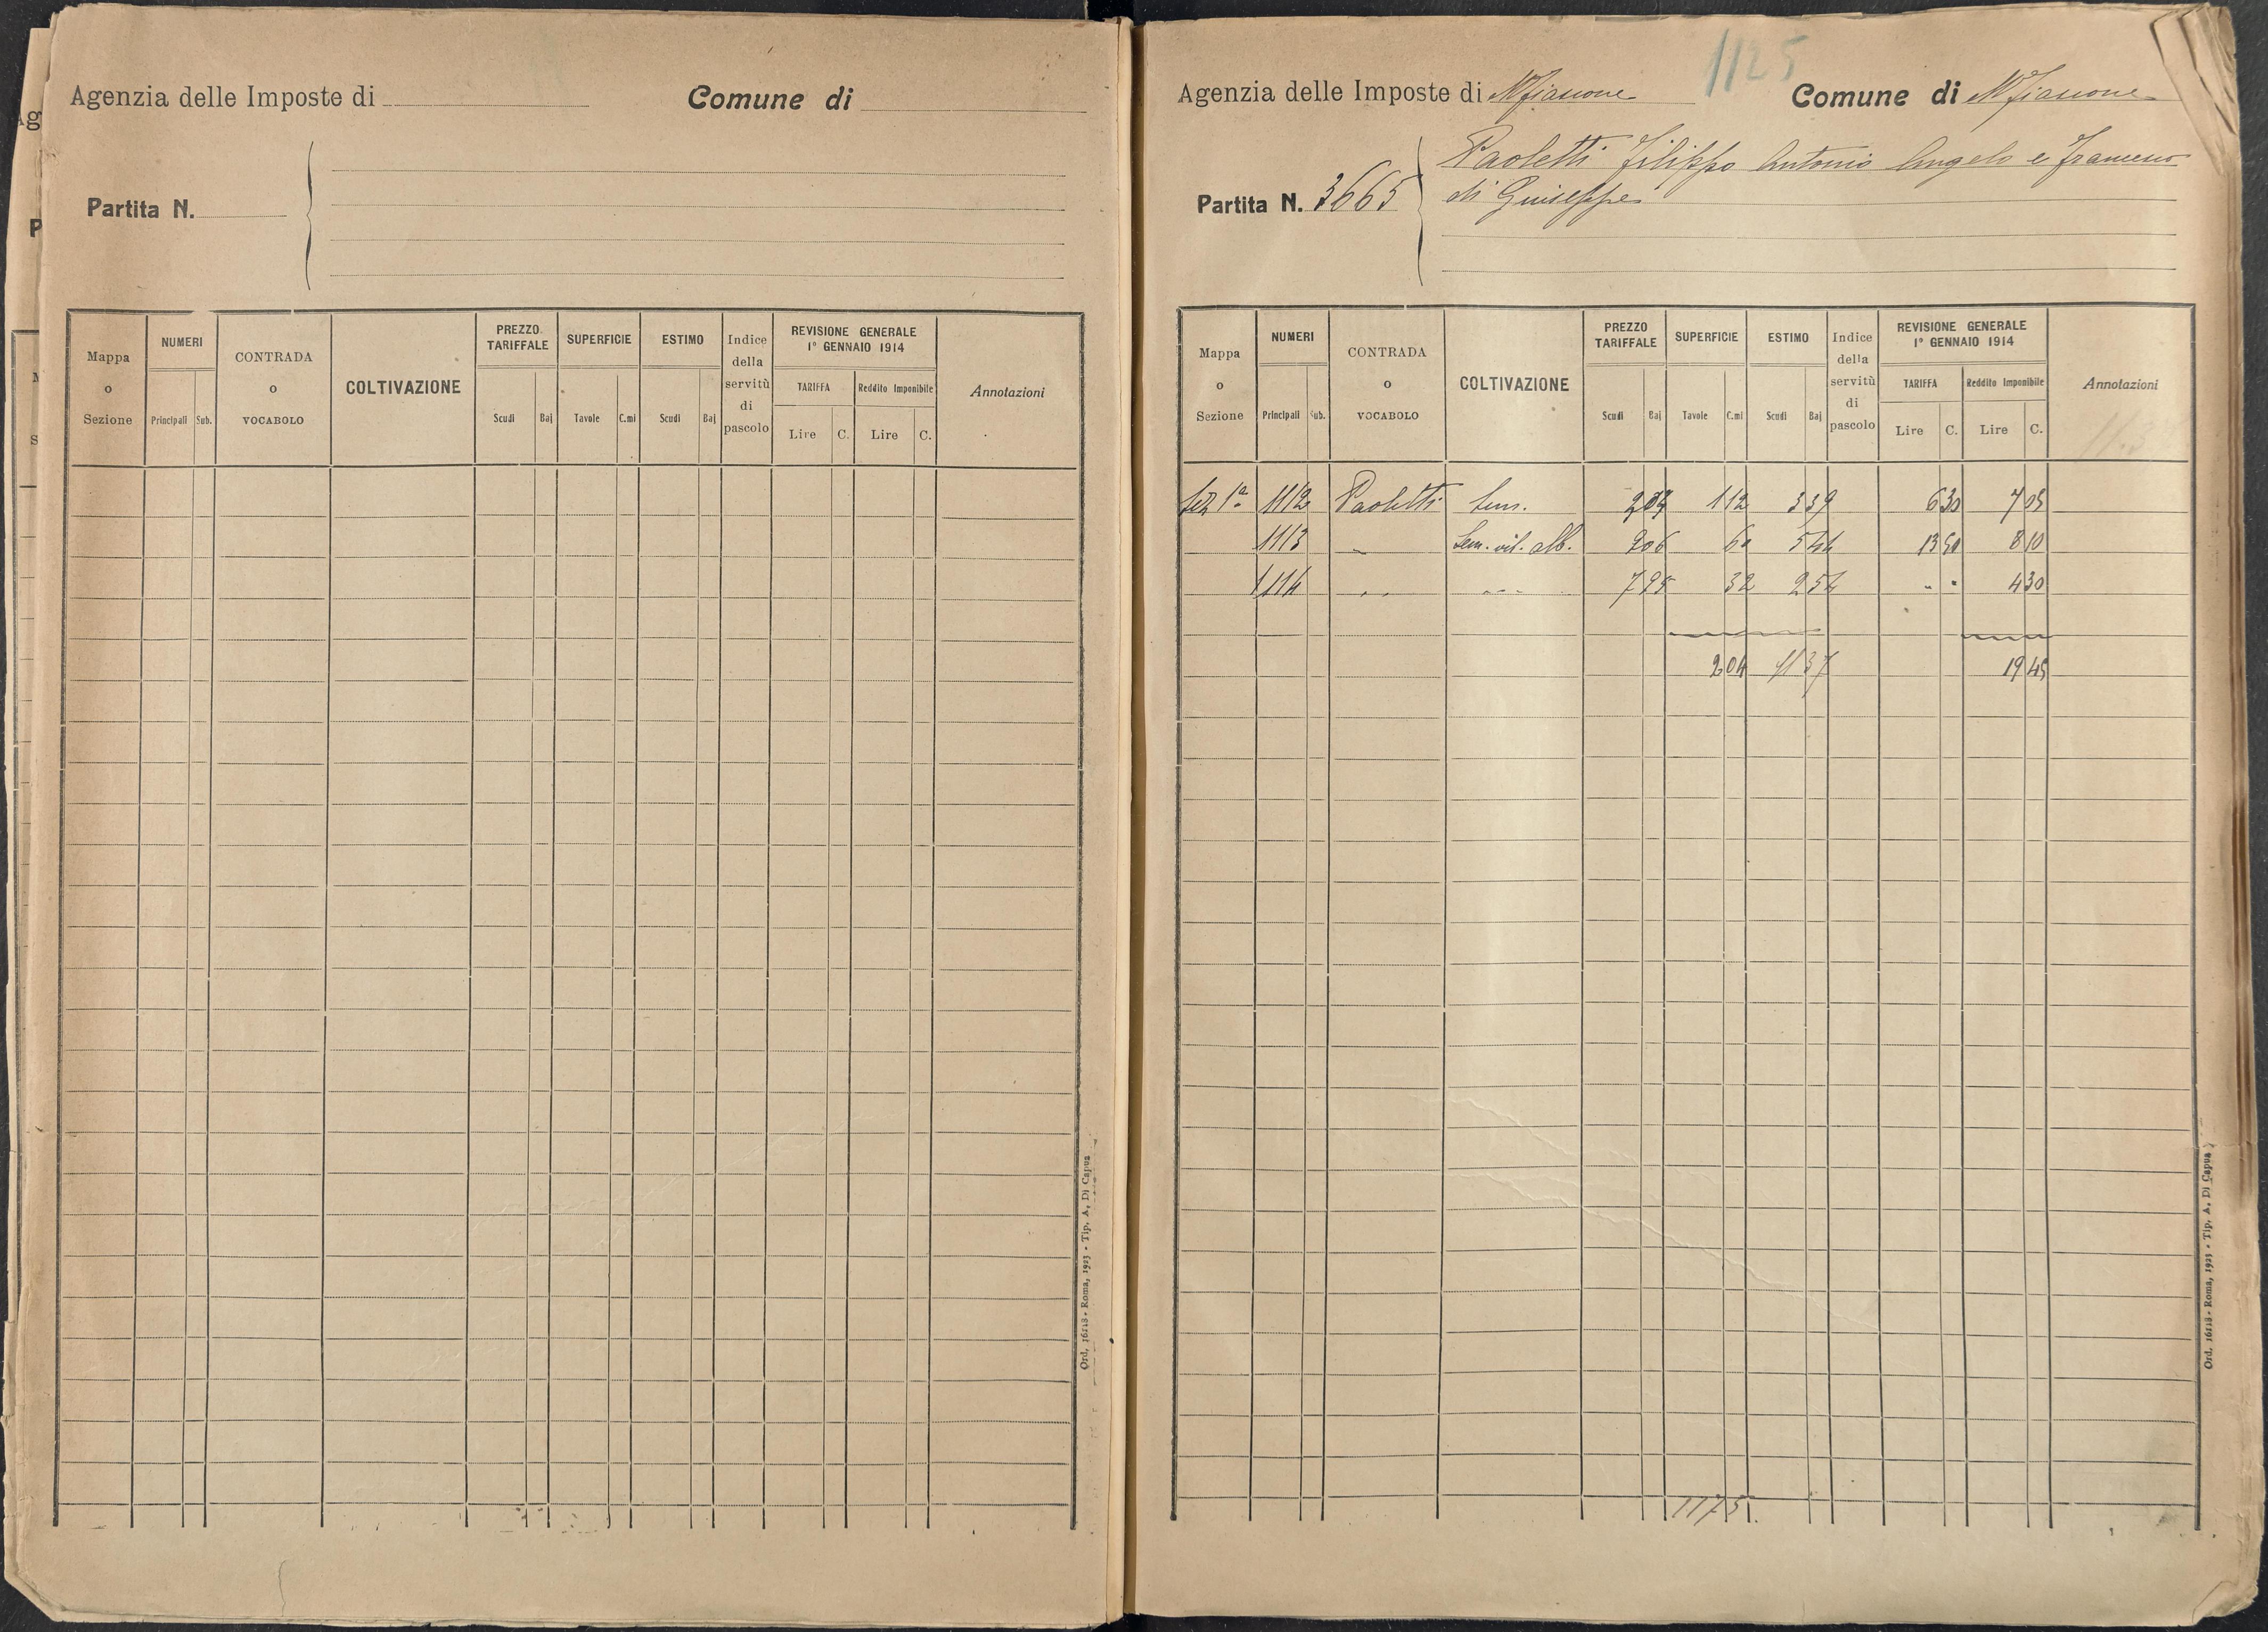 Agenzia delle Imposte di
Comune di
Partita N.
Mappa o Sezione
NUMERI
Principali Sub.
CONTRADA o VOCABOLO
COLTIVAZIONE
PREZZO TARIFFALE
Scudi Baj
SUPERFICIE
Tavole C.mi
ESTIMO
Scudi Baj
Indice della servitù di pascolo
REVISIONE GENERALE
1° GENNAIO 1914
TARIFFA
Lire C.
Reddito Imponibile
Lire C.
Annotazioni
Ord. 16518 - Roma, 1923 - Tip. A. Di Capua
1125
Agenzia delle Imposte di Mfiascone
Comune di Mfiascone
Partita N. 3665
Paoletti Filippo Antonio Angelo e Francesco
di Giuseppe
Mappa o Sezione
NUMERI
Principali Sub.
CONTRADA o VOCABOLO
COLTIVAZIONE
PREZZO TARIFFALE
Scudi Baj
SUPERFICIE
Tavole C.mi
ESTIMO
Scudi Baj
Indice della servitù di pascolo
REVISIONE GENERALE
1° GENNAIO 1914
TARIFFA
Lire C.
Reddito Imponibile
Lire C.
Annotazioni
Sez 1a 1112 Paoletti Sem. 1 12 3 39 6 30 7 05
1113 Sem. vit. alb. 9 06 60 5 44 13 50 8 10
1114 " " " " " 7 95 32 2 54 " " 4 30
2 04 11 37 19 45
1175.
Ord. 16518 - Roma, 1923 - Tip. A. Di Capua